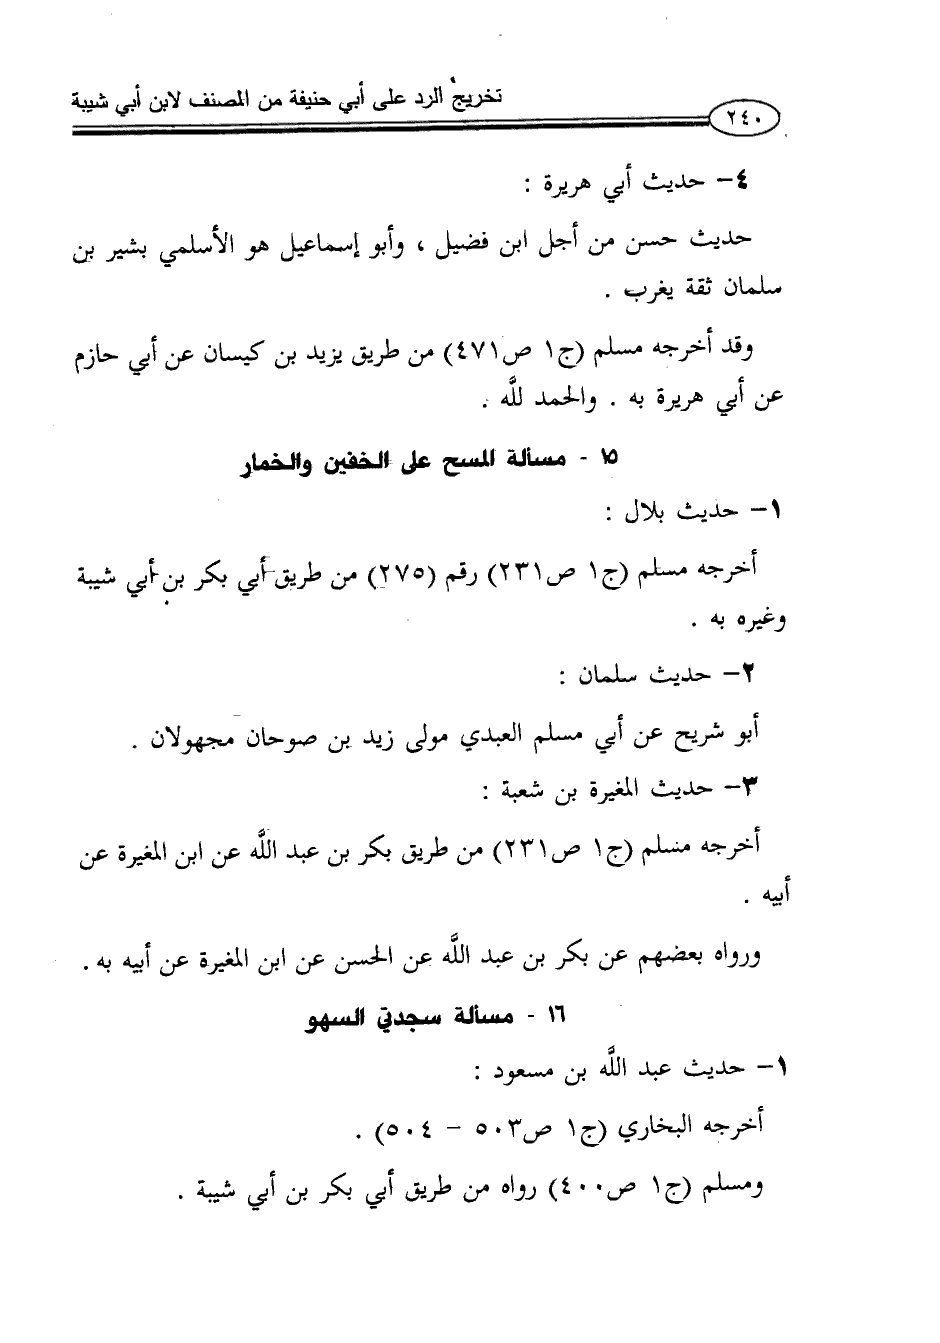 تخريج الرد على أبي حنيفة من المصنف لابن أبي شيبة
٢٤٠
٤- حديث أبي هريرة :
حديث حسن من أجل ابن فضيل ، وأبو إسماعيل هو الأسلمي بشير بن
سلمان ثقة يغرب .
وقد أخرجه مسلم (ج١ ص٤٧١) من طريق يزيد بن كيسان عن أبي حازم
عن أبي هريرة به . والحمد للَّه .
١٥ - مسألة المسح على الخفين والخمار
١- حديث بلال :
أخرجه مسلم (ج١ ص٢٣١) رقم (٢٧٥) من طريق أبي بكر بن أبي شيبة
وغيره به .
٢- حديث سلمان :
أبو شريح عن أبي مسلم العبدي مولى زيد بن صوحان مجهولان .
٣- حديث المغيرة بن شعبة :
أخرجه مسلم (ج١ ص٢٣١) من طريق بكر بن عبد اللَّه عن ابن المغيرة عن
أبيه .
ورواه بعضهم عن بكر بن عبد اللَّه عن الحسن عن ابن المغيرة عن أبيه به .
١٦ - مسألة سجدتي السهو
١- حديث عبد اللَّه بن مسعود :
أخرجه البخاري (ج١ ص٥٠٣ - ٥٠٤) .
ومسلم (ج١ ص٤٠٠) رواه من طريق أبي بكر بن أبي شيبة .